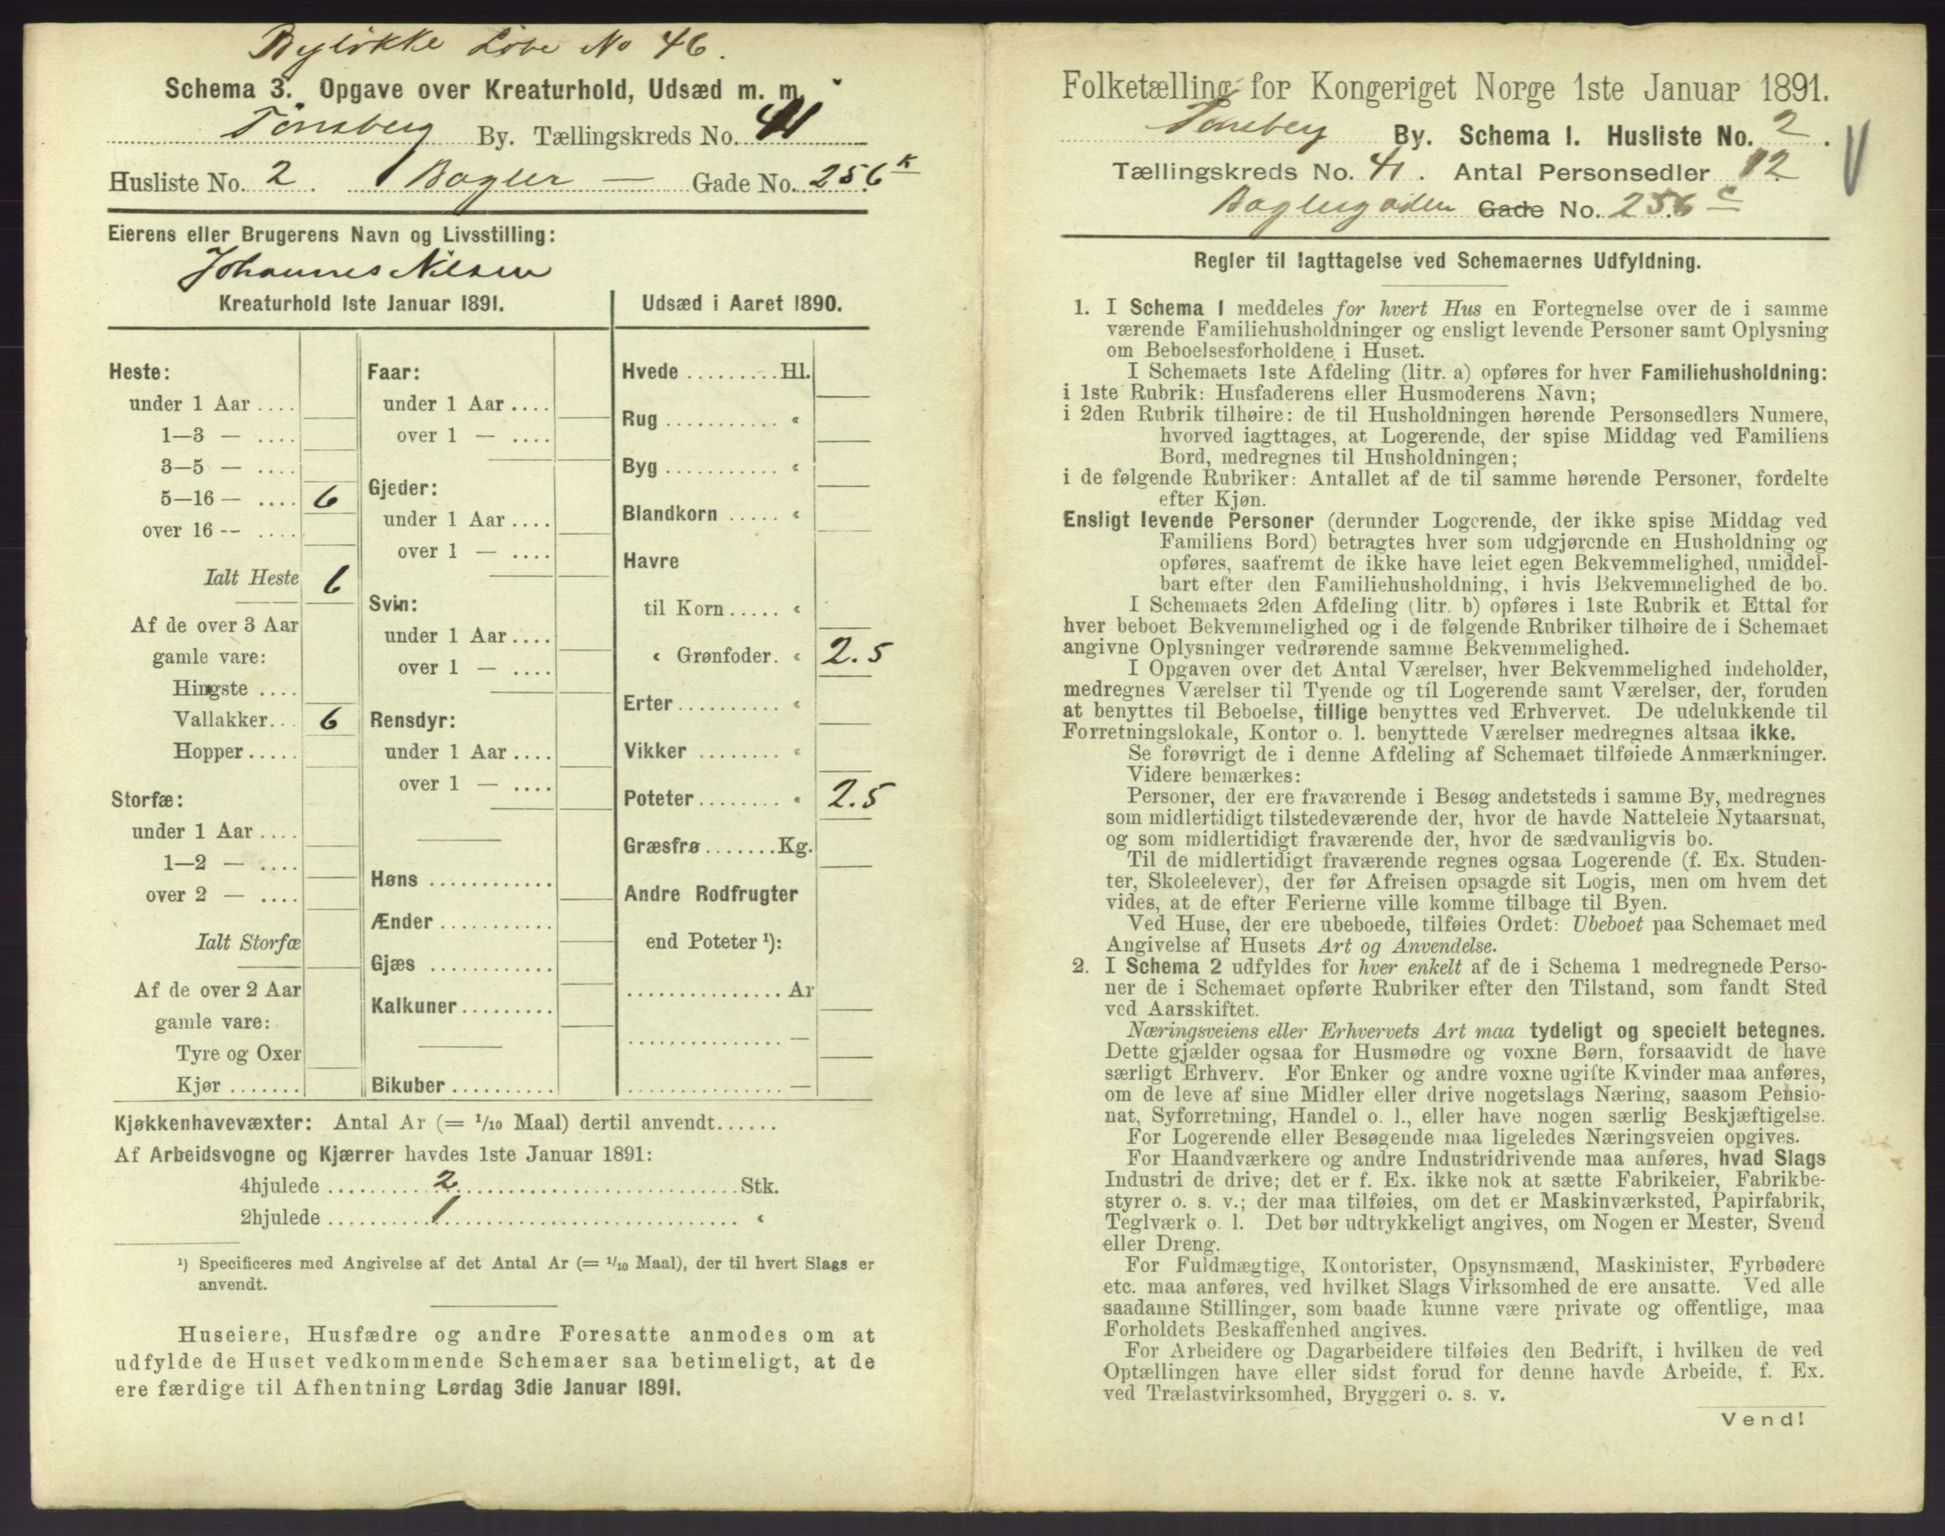 Byløkke Løbe No 46.
Schema 3. Opgave over Kreaturhold, Udsæd m. m.
Tönsberg By. Tællingskreds No. 41
Husliste No. 2. Bagler — Gade No. 256 K
Eierens eller Brugerens Navn og Livsstilling:
Johannes Nilsen
Kreaturhold 1ste Januar 1891.
Heste:
under 1 Aar ....
1—3 — ....
3—5 — ....
5—16 — .... 6
over 16 -- ....
Ialt Heste 6
Af de over 3 Aar
gamle vare:
Hingste ....
Vallakker... 6
Hopper.....
Storfæ:
under 1 Aar ....
1—2 — ....
over 2 — ....
Ialt Storfæ
Af de over 2 Aar
gamle vare:
Tyre og Oxer
Kjør .......
Faar:
under 1 Aar ....
over 1 — ....
Gjeder:
under 1 Aar ....
over 1 — ....
Svin:
under 1 Aar ....
over 1 — ....
Rensdyr:
under 1 Aar ....
over 1 — ....
Høns ............
Ænder ...........
Gjæs ............
Kalkuner.........
Bikuber ..........
Udsæd i Aaret 1890.
Hvede .........Hl.
Rug ........... «
Byg ........... «
Blandkorn ..... «
Havre
til Korn..... «
« Grønfoder. « 2.5
Erter.......... «
Vikker ........ «
Poteter........ « 2.5
Græsfrø.......Kg.
Andre Rodfrugter
end Poteter ¹):
............... Ar
............... —
............... —
Kjøkkenhavevæxter: Antal Ar (= 1/10 Maal) dertil anvendt......
Af Arbeidsvogne og Kjærrer havdes 1ste Januar 1891:
4hjulede .......... 2 ..........Stk.
2hjulede .......... 1 .......... «
¹) Specificeres med Angivelse af det Antal Ar (= 1/10 Maal), der til hvert Slags er
anvendt.
Huseiere, Husfædre og andre Foresatte anmodes om at
udfylde de Huset vedkommende Schemaer saa betimeligt, at de
ere færdige til Afhentning Lørdag 3die Januar 1891.
Folketælling for Kongeriget Norge 1ste Januar 1891.
Tönsberg By. Schema I. Husliste No. 2.
Tællingskreds No. 41. Antal Personsedler 12
Baglergaden Gade No. 256 c
Regler til Iagttagelse ved Schemaernes Udfyldning.
1. I Schema I meddeles for hvert Hus en Fortegnelse over de i samme
værende Familiehusholdninger og ensligt levende Personer samt Oplysning
om Beboelsesforholdene i Huset.
I Schemaets 1ste Afdeling (litr. a) opføres for hver Familiehusholdning:
i 1ste Rubrik: Husfaderens eller Husmoderens Navn;
i 2den Rubrik tilhøire: de til Husholdningen hørende Personsedlers Numere,
hvorved iagttages, at Logerende, der spise Middag ved Familiens
Bord, medregnes til Husholdningen;
i de følgende Rubriker: Antallet af de til samme hørende Personer, fordelte
efter Kjøn.
Ensligt levende Personer (derunder Logerende, der ikke spise Middag ved
Familiens Bord) betragtes hver som udgjørende en Husholdning og
opføres, saafremt de ikke have leiet egen Bekvemmelighed, umiddel-
bart efter den Familiehusholdning, i hvis Bekvemmelighed de bo.
I Schemaets 2den Afdeling (litr. b) opføres i 1ste Rubrik et Ettal for
hver beboet Bekvemmelighed og i de følgende Rubriker tilhøire de i Schemaet
angivne Oplysninger vedrørende samme Bekvemmelighed.
I Opgaven over det Antal Værelser, hver Bekvemmelighed indeholder,
medregnes Værelser til Tyende og til Logerende samt Værelser, der, foruden
at benyttes til Beboelse, tillige benyttes ved Erhvervet. De udelukkende til
Forretningslokale, Kontor o. l. benyttede Værelser medregnes altsaa ikke.
Se forøvrigt de i denne Afdeling af Schemaet tilføiede Anmærkninger.
Videre bemærkes:
Personer, der ere fraværende i Besøg andetsteds i samme By, medregnes
som midlertidigt tilstedeværende der, hvor de havde Natteleie Nytaarsnat,
og som midlertidigt fraværende der, hvor de sædvanligvis bo.
Til de midlertidigt fraværende regnes ogsaa Logerende (f. Ex. Studen-
ter, Skoleelever), der før Afreisen opsagde sit Logis, men om hvem det
vides, at de efter Ferierne ville komme tilbage til Byen.
Ved Huse, der ere ubeboede, tilføies Ordet: Ubeboet paa Schemaet med
Angivelse af Husets Art og Anvendelse.
2. I Schema 2 udfyldes for hver enkelt af de i Schema 1 medregnede Perso-
ner de i Schemaet opførte Rubriker efter den Tilstand, som fandt Sted
ved Aarsskiftet.
Næringsveiens eller Erhvervets Art maa tydeligt og specielt betegnes.
Dette gjælder ogsaa for Husmødre og voxne Børn, forsaavidt de have
særligt Erhverv. For Enker og andre voxne ugifte Kvinder maa anføres,
om de leve af sine Midler eller drive nogetslags Næring, saasom Pensio-
nat, Syforretning, Handel o. l., eller have nogen særlig Beskjæftigelse.
For Logerende eller Besøgende maa ligeledes Næringsveien opgives.
For Haandværkere og andre Industridrivende maa anføres, hvad Slags
Industri de drive; det er f. Ex. ikke nok at sætte Fabrikeier, Fabrikbe-
styrer o. s. v.; der maa tilføies, om det er Maskinværksted, Papirfabrik,
Teglværk o. l. Det bør udtrykkeligt angives, om Nogen er Mester, Svend
eller Dreng.
For Fuldmægtige, Kontorister, Opsynsmænd, Maskinister, Fyrbødere
etc. maa anføres, ved hvilket Slags Virksomhed de ere ansatte. Ved alle
saadanne Stillinger, som baade kunne være private og offentlige, maa
Forholdets Beskaffenhed angives.
For Arbeidere og Dagarbeidere tilføies den Bedrift, i hvilken de ved
Optællingen have eller sidst forud for denne havde Arbeide, f. Ex.
ved Trælastvirksomhed, Bryggeri o. s. v.
Vend!